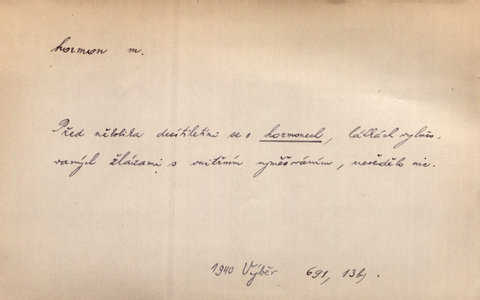 hormon m.
Před několika desítiletími se o hormonech, látkách vylučo-
vaných žlázami s vnitřním vyměšováním, nevědělo nic.
1940 Výběr 691, 136.